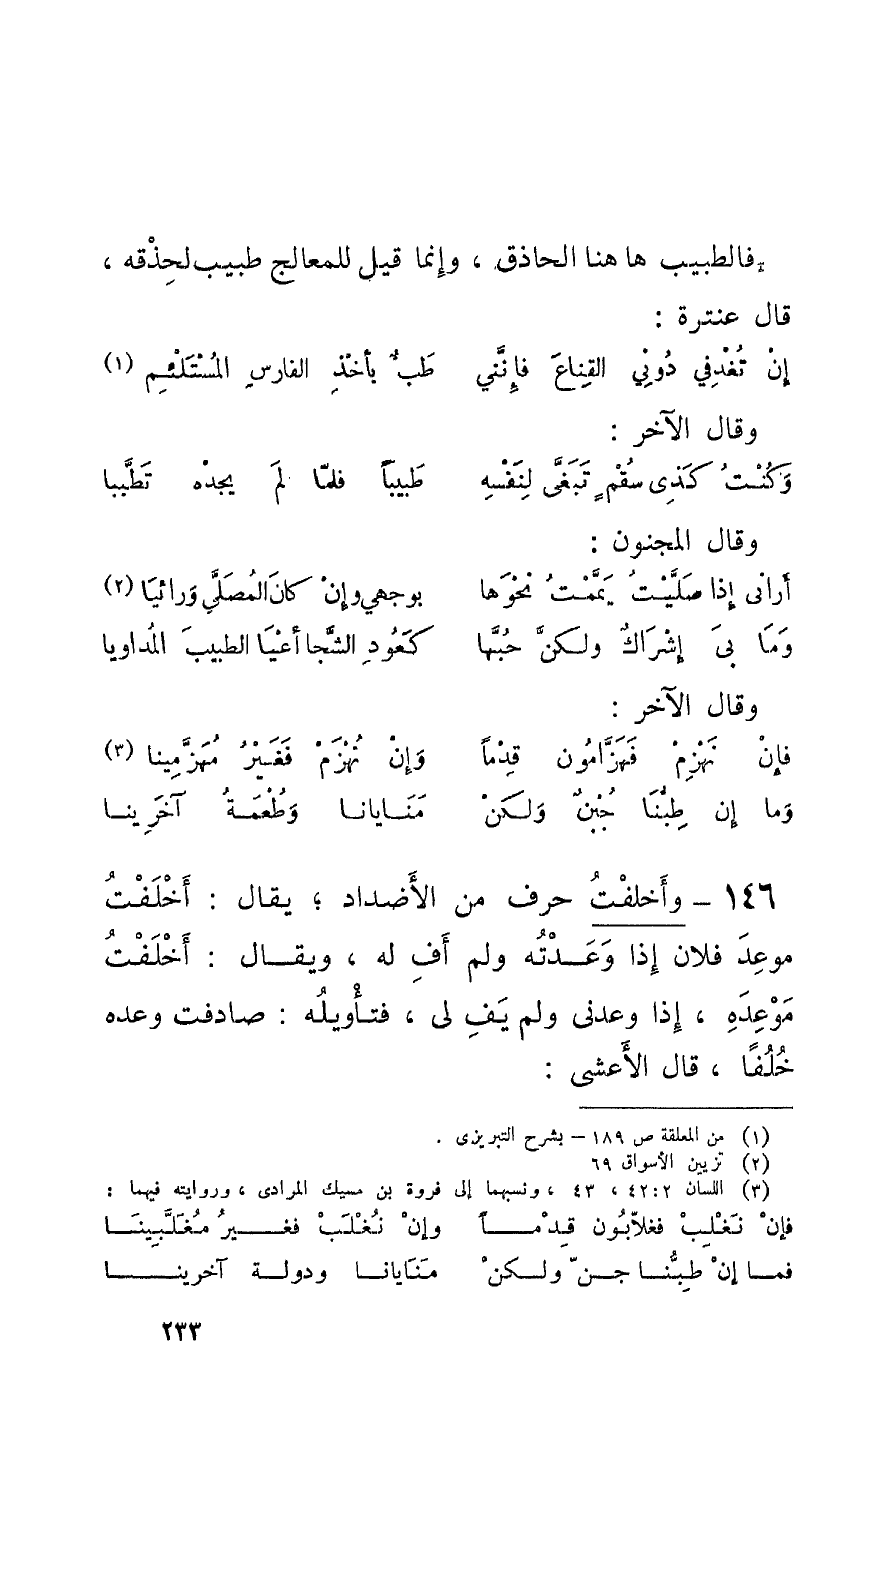 فالطبيب ها هنا الحاذق ، وإنما قيل للمعالج طبيب لحِذْقه ،
قال عنترة :
إنْ تُغْدِفي دُونِيْ القِناعَ فإنَّني طَبٌّ بأخْذِ الفارسِ المُسْتَلْئِمِ (١)
وقال الآخر :
وَكُنْتُ كَذِى سُقْمٍ تَبَغَّى لِنَفْسِهِ طَبِيباً فلمّا لَمْ يجدْه تَطَبَّبا
وقال المجنون :
أرانى إذا صَلَّيْتُ يَمَّمْتُ نَحْوَها بوجهي وإنْ كانَ المُصَلَّى وَرائيَا (٢)
وَمَا بىَ إشْرَاكٌ ولكنَّ حُبَّها كَعُودِ الشَّجا أعْيَا الطبيبَ المُداويا
وقال الآخر :
فإنْ نَهْزِمْ فَهَزَّامُون قِدْماً وَإنْ نُهْزَمْ فَغَيْرُ مُهَزَّمِينا (٣)
وَما إن طِبُّنَا جُبْنٌ وَلكنْ مَنَايانا وَطُعْمَةُ آخَرِينا
١٤٦ – وأَخلفْتُ حرف من الأَضداد ؛ يقال : أَخْلَفْتُ
موعِدَ فلان إذا وَعَدْتُه ولم أَفِ له ، ويقال : أَخْلَفْتُ
مَوْعِدَهِ ، إذا وعدنى ولم يَفِ لى ، فتأْويلُه : صادفت وعده
خُلُفًا ، قال الأَعشى :
(١) من المعلقة ص ١٨٩ – بشرح التبريزى .
(٢) تزيين الأسواق ٦٩
(٣) اللسان ٢:٤٢ ، ٤٣ ، ونسبهما إلى فروة بن مسيك المرادى ، وروايته فيهما :
فإنْ نَغْلِبْ فغلاّبُون قِدْماً وإنْ نُغْلَبْ فغيرُ مُغَلَّبِينَا
فما إنْ طِبُّنا جنّ ولكنْ مَنَايانا ودولة آخرينا
٢٣٣